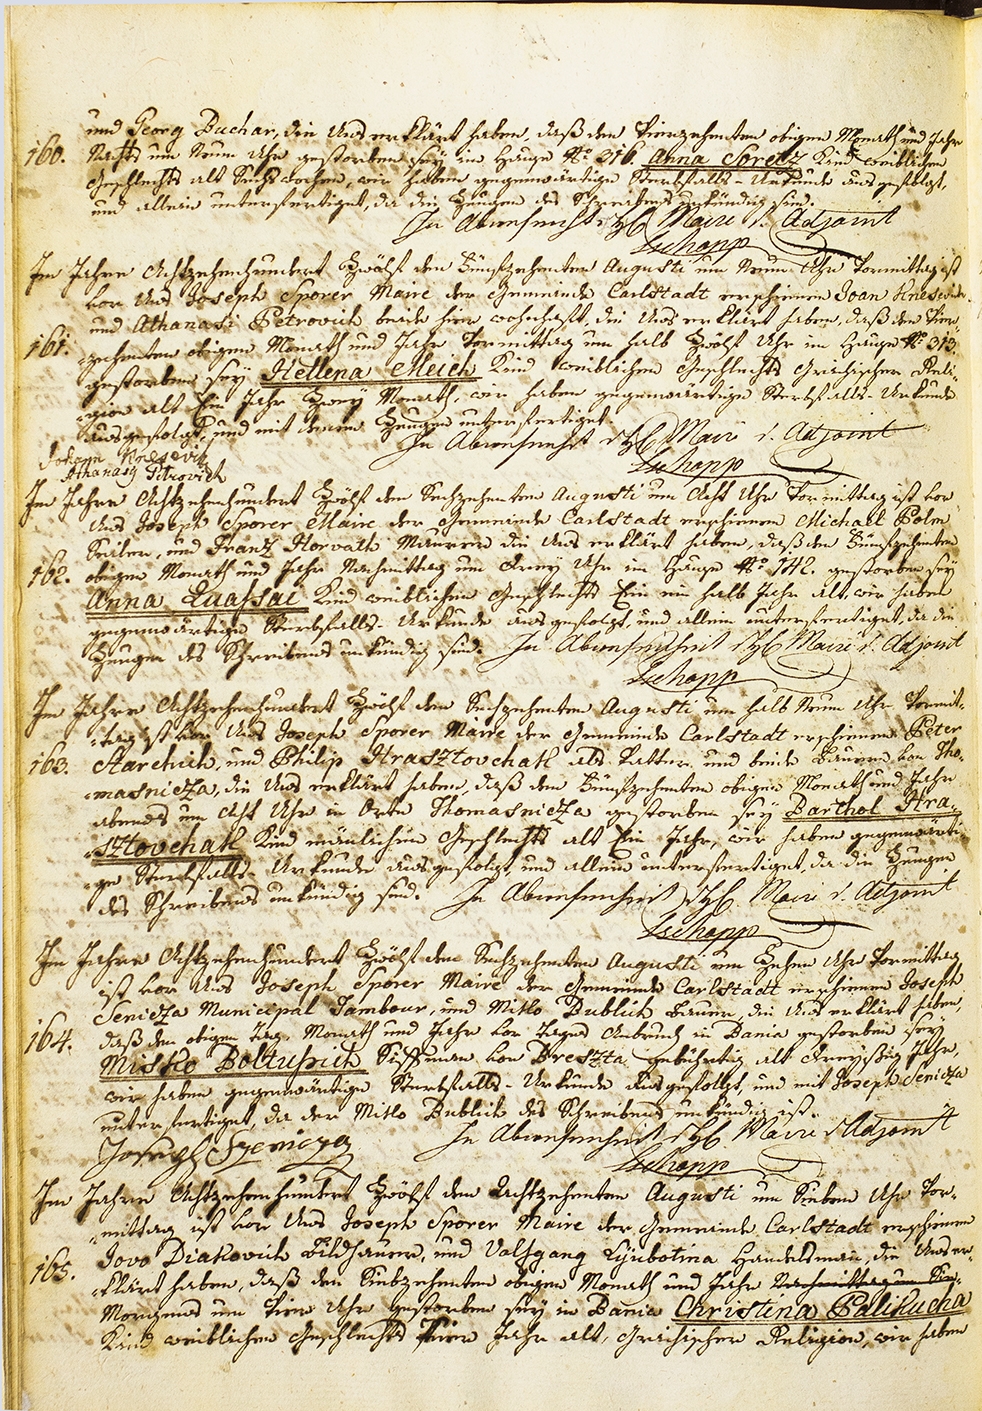 und Georg Buchar, die Uns erklärt haben, daß den Vierzehenten obigen Monath und Jahr
160. Nachts um Neun Uhr gestorben sey im Hause No. 316. Anna Soretz Kind weiblichen
Geschlechts alt Sechs wochen, wir haben gegenwärtige Sterbfalls-Urkunde ausgefolgt,
und allein unterfertiget, da die Zeugen des Schreibens unkündig sind.
In Abwesenheit d. H. Maire d. Adjoint
Tschapp
Im Jahre Achtzehenhundert Zwölf den Fünfzehenten Augusti um Neun Uhr Vormittag ist
vor Uns Joseph Sporer Maire der Gemeinde Carlstadt erschienen Joan Knesevich
und Athanasi Petrovich beide hier wohnhaft, die Uns erklärt haben, daß den Vier-
161. zehenten obigen Monath und Jahr Vormittag um halb Zwölf Uhr im Hause No. 313.
gestorben sey Hellena Meich Kind weiblichen Geschlechts Grichischer Reli-
gion alt Ein Jahr Zwey Monath, wir haben gegenwärtige Sterbfalls-Urkunde
ausgefolgt, und mit denen Zeugen unterfertiget.
In Abwesenheit d. H. Maire d. Adjoint
Johann Knesevich
Athanasy Petrovich
Tschapp
Im Jahre Achtzehenhundert Zwölf den Sechzehenten Augusti um Acht Uhr Vormittag ist vor
Uns Joseph Sporer Maire der Gemeinde Carlstadt erschienen Michael Polm
Seiler, und Frantz Horvath Maurer die Uns erklärt haben, daß den Fünfzehenten
162. obigen Monath und Jahr Nachmittag um Drey Uhr im Hause No. 142. gestorben sey
Anna Luassai Kind weiblichen Geschlechts Ein ein halb Jahr alt, wir haben
gegenwärtige Sterbfalls-Urkunde ausgefolgt, und allein unterfertiget, da die
Zeugen des Schreibens unkündig sind. In Abwesenheit d. H. Maire d. Adjoint
Tschapp
Im Jahre Achtzehenhundert Zwölf den Sechzehenten Augusti um halb Neun Uhr Vormit-
tag ist vor Uns Joseph Sporer Maire der Gemeinde Carlstadt erschienen Peter
163. Starchich, und Philip Hrasztovchak als Vatter und beide Bauern von Tho-
masnicza, die Uns erklärt haben, daß den Fünfzehenten obigen Monath und Jahr
abends um Acht Uhr in Orte Thomasnicza gestorben sey Barthol Hra-
sztovchak Kind mänlichen Geschlechts alt Ein Jahr, wir haben gegenwärti-
ge Sterbfalls-Urkunde ausgefolgt, und allein unterfertiget, da die Zeugen
des Schreibens unkündig sind. In Abwesenheit d. H. Maire d. Adjoint
Tschapp
Im Jahre Achtzehenhundert Zwölf den Sechzehenten Augusti um Zehen Uhr Vormittag
ist vor Uns Joseph Sporer Maire der Gemeinde Carlstadt erschienen Joseph
Senicza Municipal Tambour, und Mitlo Bublich Bauer, die Uns erklärt haben,
164. daß den obigen Tag, Monath und Jahr vor Tages Anbruch in Bania gestorben sey
Misko Boltusich Schiffman von Breszta gebührtig alt Dreyßig Jahr,
wir haben gegenwärtige Sterbfalls-Urkunde ausgefolgt, und mit Joseph Senicza
unterfertiget, da der Mitlo Bublich des Schreibens unkündig ist.
Joseph Szenicza In Abwesenheit d. H. Maire d. Adjoint
Tschapp
Im Jahre Achtzehenhundert Zwölf den Achtzehenten Augusti um Sieben Uhr Vor-
mittag ist vor Uns Joseph Sporer Maire der Gemeinde Carlstadt erschienen
Jovo Diakovich Bildhauer, und Volfgang Ljubotina Handelsman, die Uns er-
165. klärt haben, daß den Siebzehenten obigen Monath und Jahr Nachmittag um Sie-
Morgens um Vier Uhr gestorben sey in Bania Christina Palikucha
Kind weiblichen Geschlechts Vier Jahr alt, Grichischer Religion, wir haben